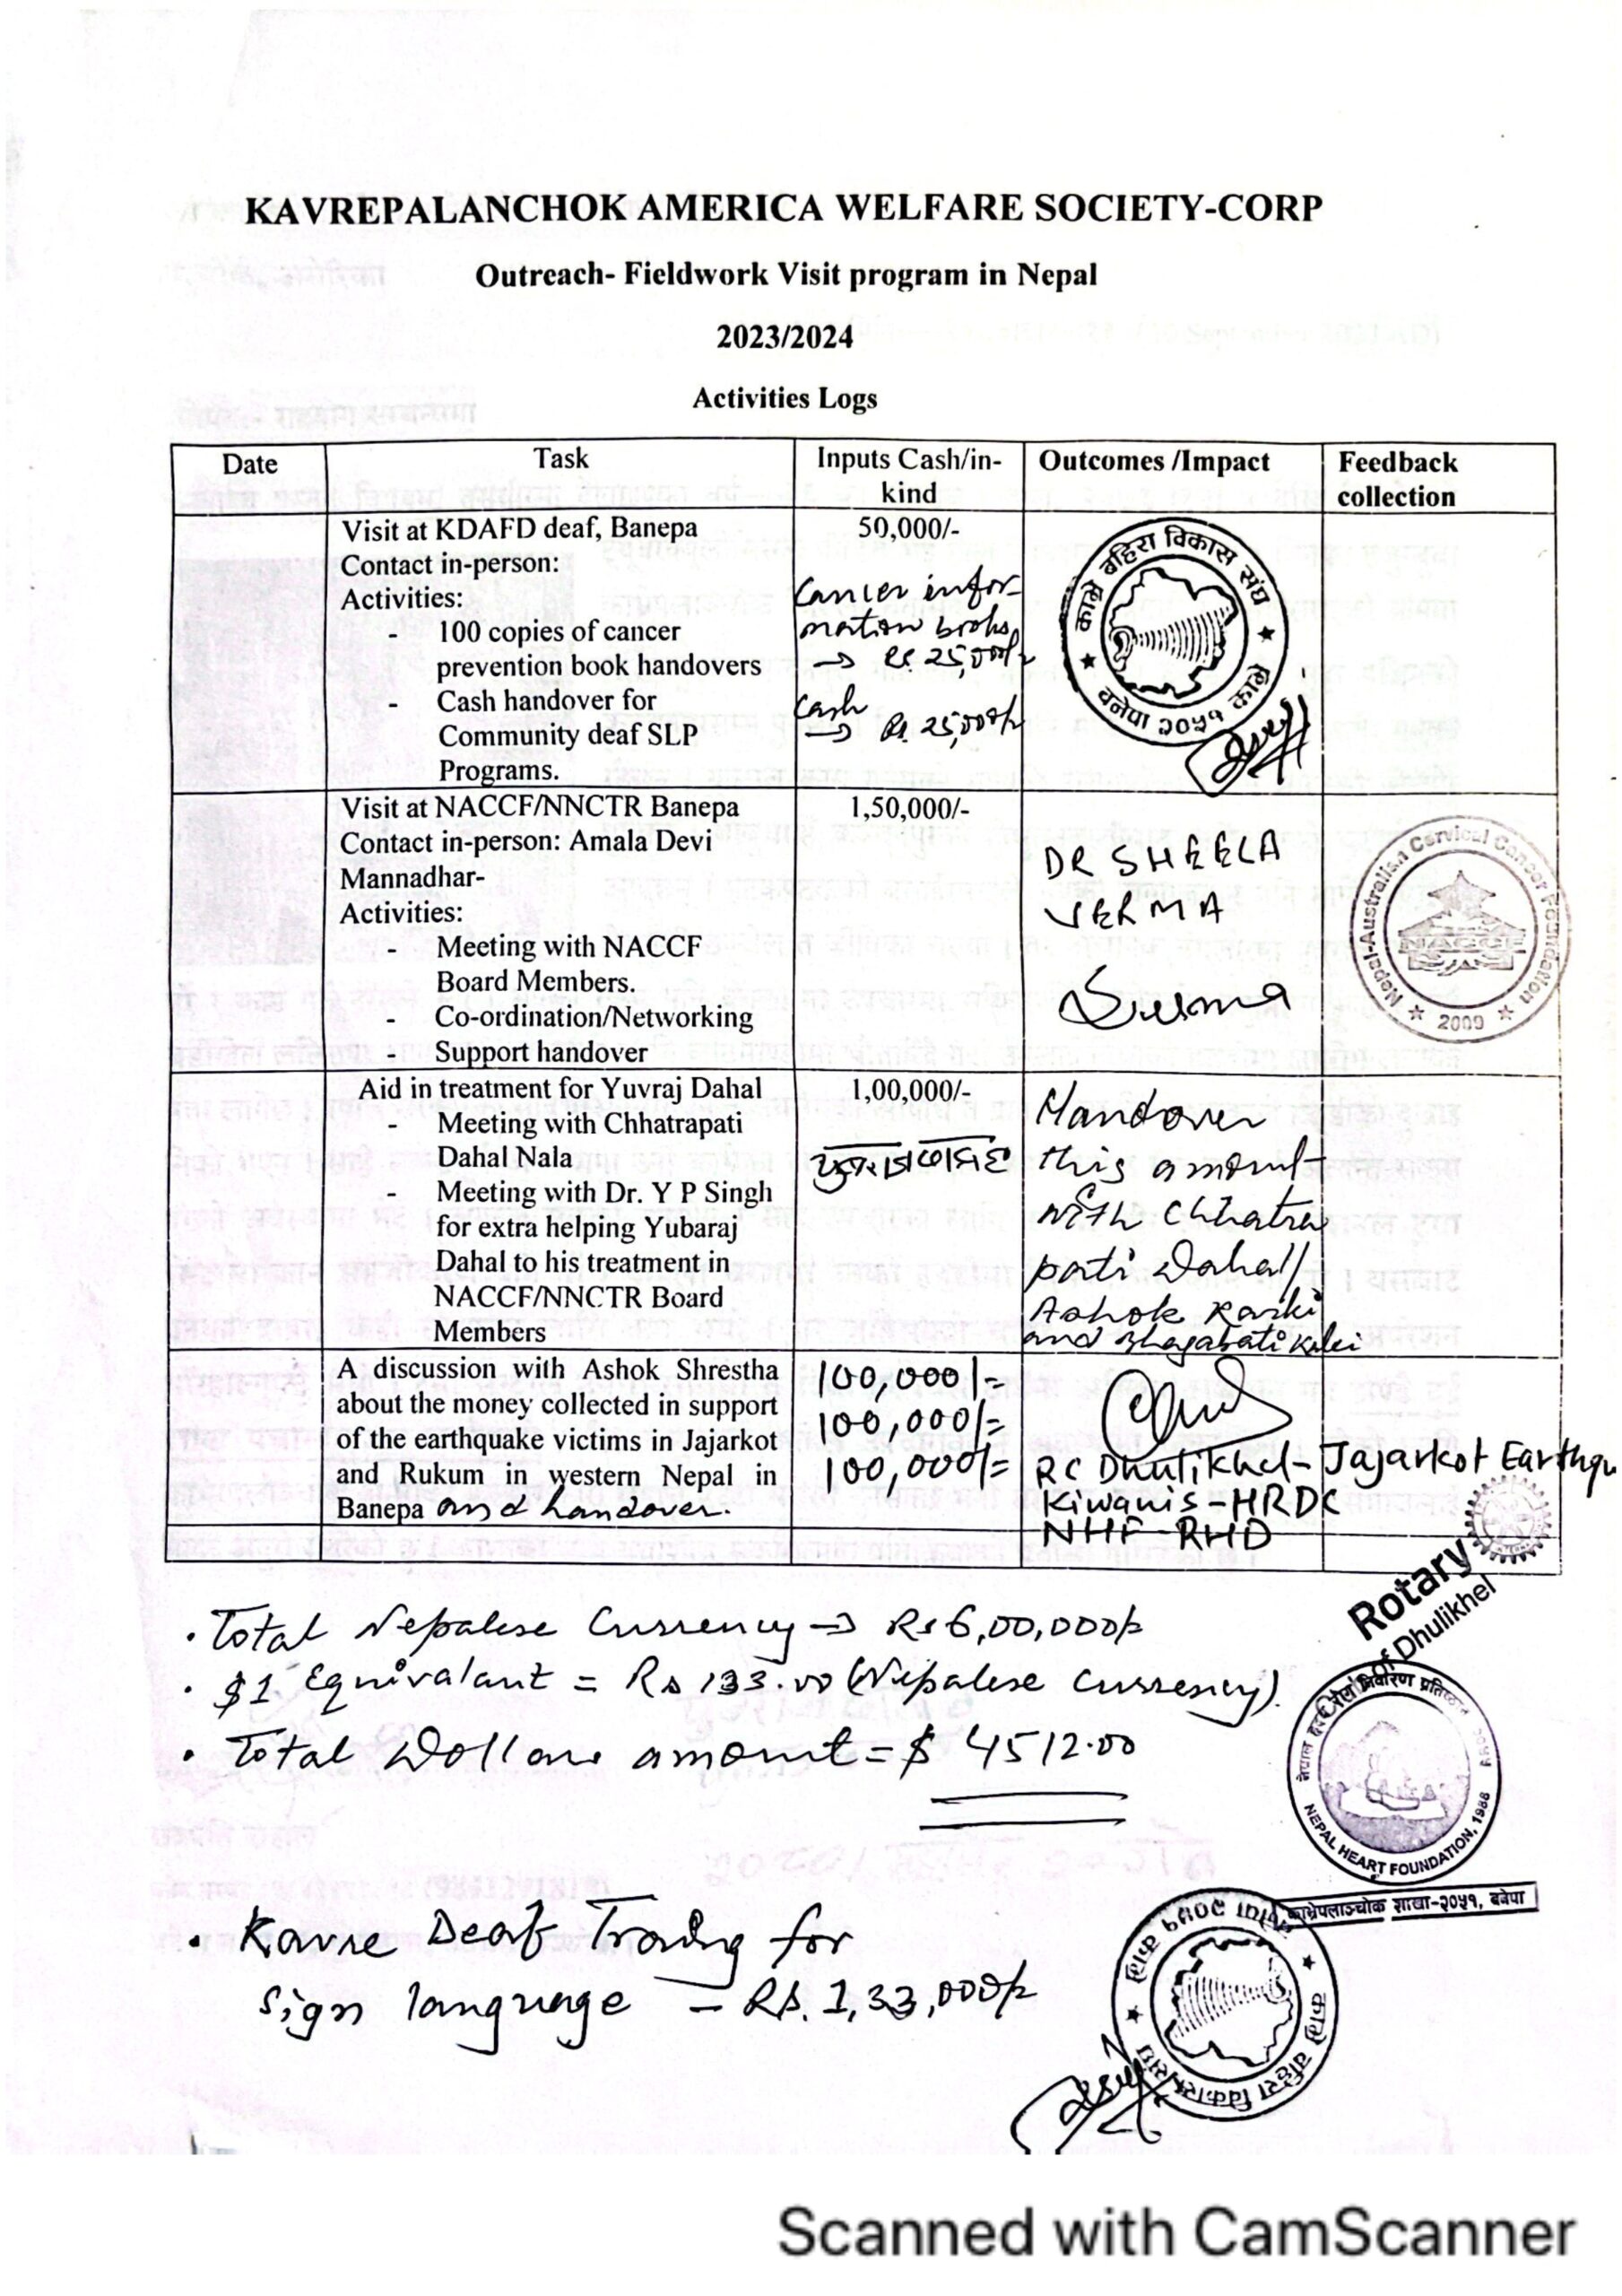 KAVREPALANCHOK AMERICA WELFARE SOCIETY-CORP
Outreach- Fieldwork Visit program in Nepal
2023/2024
Activities Logs
Date Task Inputs Cash/in-kind Outcomes /Impact Feedback collection
Visit at KDAFD deaf, Banepa
Contact in-person:
Activities:
- 100 copies of cancer
prevention book handovers
- Cash handover for
Community deaf SLP
Programs.
50,000/-
Cancer infor-
mation books
→ Rs. 25,000/-
Cash
→ Rs. 25,000/-
काभ्रे बहिरा विकास संघ
बनेपा २०५१ काभ्रे
Visit at NACCF/NNCTR Banepa
Contact in-person: Amala Devi
Mannadhar-
Activities:
- Meeting with NACCF
Board Members.
- Co-ordination/Networking
- Support handover
1,50,000/-
DR SHEELA
VERMA
Nepal-Australian Cervical Cancer Foundation
2009
Aid in treatment for Yuvraj Dahal
- Meeting with Chhatrapati
Dahal Nala
- Meeting with Dr. Y P Singh
for extra helping Yubaraj
Dahal to his treatment in
NACCF/NNCTR Board
Members
1,00,000/-
Handover
this amount
with Chhatra
pati Dahal/
Ashok Karki
and Bhagabati
A discussion with Ashok Shrestha
about the money collected in support
of the earthquake victims in Jajarkot
and Rukum in western Nepal in
Banepa and handover.
100,000/-
100,000/=
100,000/=
RC Dhulikhel- Jajarkot Earthqu
Kiwanis-HRDC
NHF RHD
Rotary
of Dhulikhel
• Total Nepalese Currency → Rs 6,00,000/-
• $1 Equivalant = Rs 133.00 (Nepalese Currency).
• Total Dollars amount = $ 4512.00
NEPAL HEART FOUNDATION, 1988
काभ्रेपलाञ्चोक शाखा-२०५१, बनेपा
• Kavre Deaf Traning for
Sign language – Rs. 1,33,000/-
काभ्रे बहिरा विकास संघ
बनेपा २०५१ काभ्रे
Scanned with CamScanner